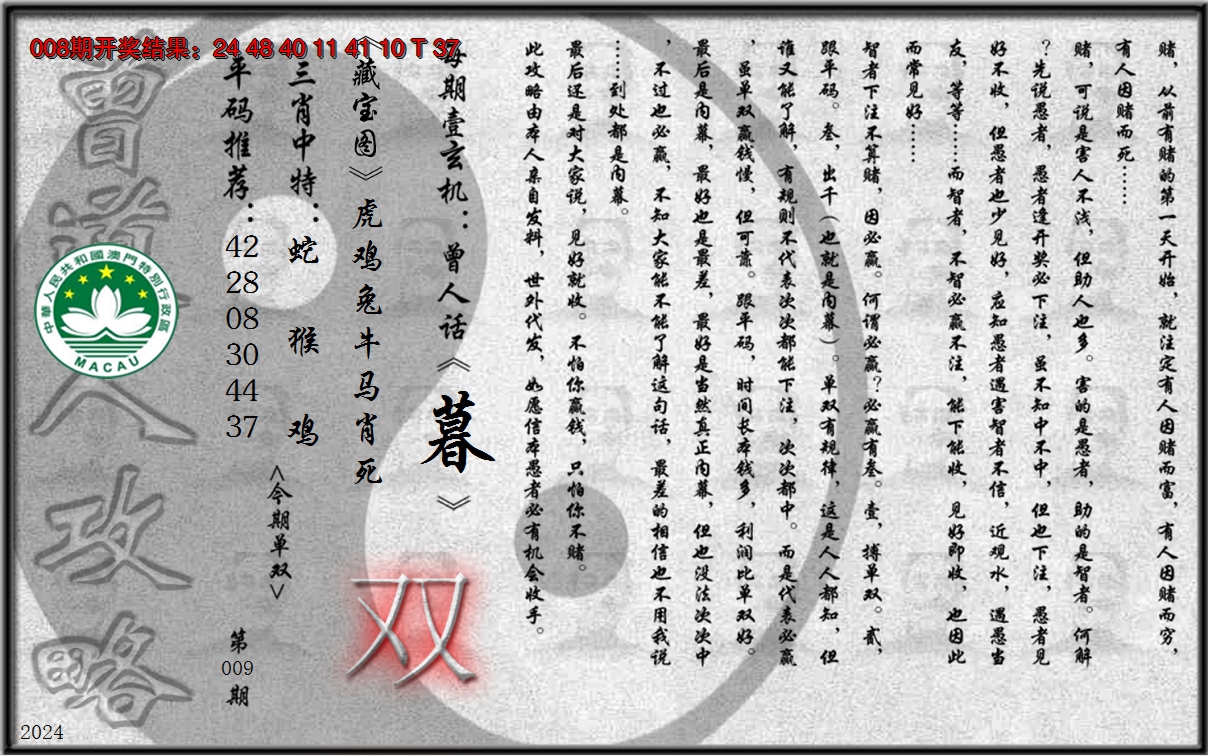 008期开奖结果：24 48 40 11 41 10 T 37
赌，从前有赌的第一天开始，就注定有人因赌而富，有人因赌而穷，
有人因赌而死……
赌，可说是害人不浅，但助人也多。害的是愚者，助的是智者。何解
？先说愚者，愚者逢开奖必下注，虽不知中不中，但也下注，愚者见
好不收，但愚者也少见好，应知愚者遇害智者不信，近观水，遇愚当
友，等等……而智者，不智必赢不注，能下能收，见好即收，也因此
而常见好……
智者下注不算赌，因必赢。何谓必赢？必赢有叁。壹，搏单双。贰，
跟平码。叁，出千（也就是内幕）。单双有规律，这是人人都知，但
谁又能了解，有规则不代表次次都能下注，次次都中。而是代表必赢
，虽单双赢钱慢，但可靠。跟平码，时间长本钱多，利润比单双好。
最后是内幕，最好也是最差，最好是当然真正内幕，但也没法次次中
，不过也必赢，不知大家能不能了解这句话，最差的相信也不用我说
……到处都是内幕。
最后还是对大家说，见好就收。不怕你赢钱，只怕你不赌。
此攻略由本人亲自发料，世外代发，如愿信本愚者必有机会收手。
每期壹玄机：曾人话《暮》
《藏宝图》虎鸡兔牛马肖死
双
三肖中特：蛇 猴 鸡
<今期单双>
平码推荐：
42
28
08
30
44
37
第
009
期
曾道人攻略
中華人民共和國澳門特別行政區
MACAU
2024